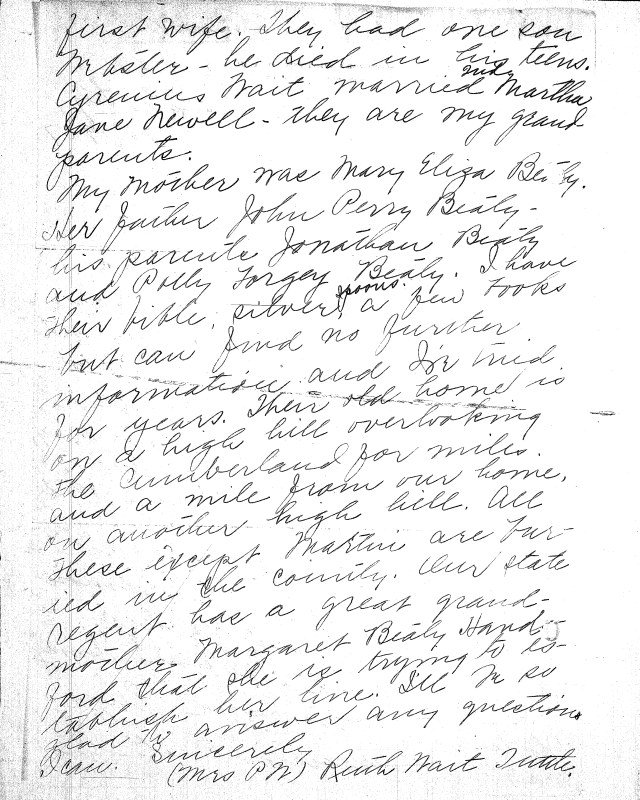 first wife. They had one son
Webster - he died in his teens.
Cyrenius Wait married 2nd Martha
Jane Newell - they are my grand
parents.
My Mother was Mary Eliza Beaty.
Her father John Perry Beaty -
his parents Jonathan Beaty
and Polly Forgey Beaty. I have
their bible, silver spoons, a few books
but can find no further
information and I've tried
for years. Their old home is
on a high hill overlooking
the Cumberland for miles.
and a mile from our home,
on another high hill. All
these except Martin are bur-
ied in the county. Our state
regent has a great grand-
mother Margaret Beaty Hand-
ford that she is trying to es-
tablish her line. I'll be so
glad to answer any questions
I can. Sincerely
(Mrs P W) Ruth Wait Tuttle.